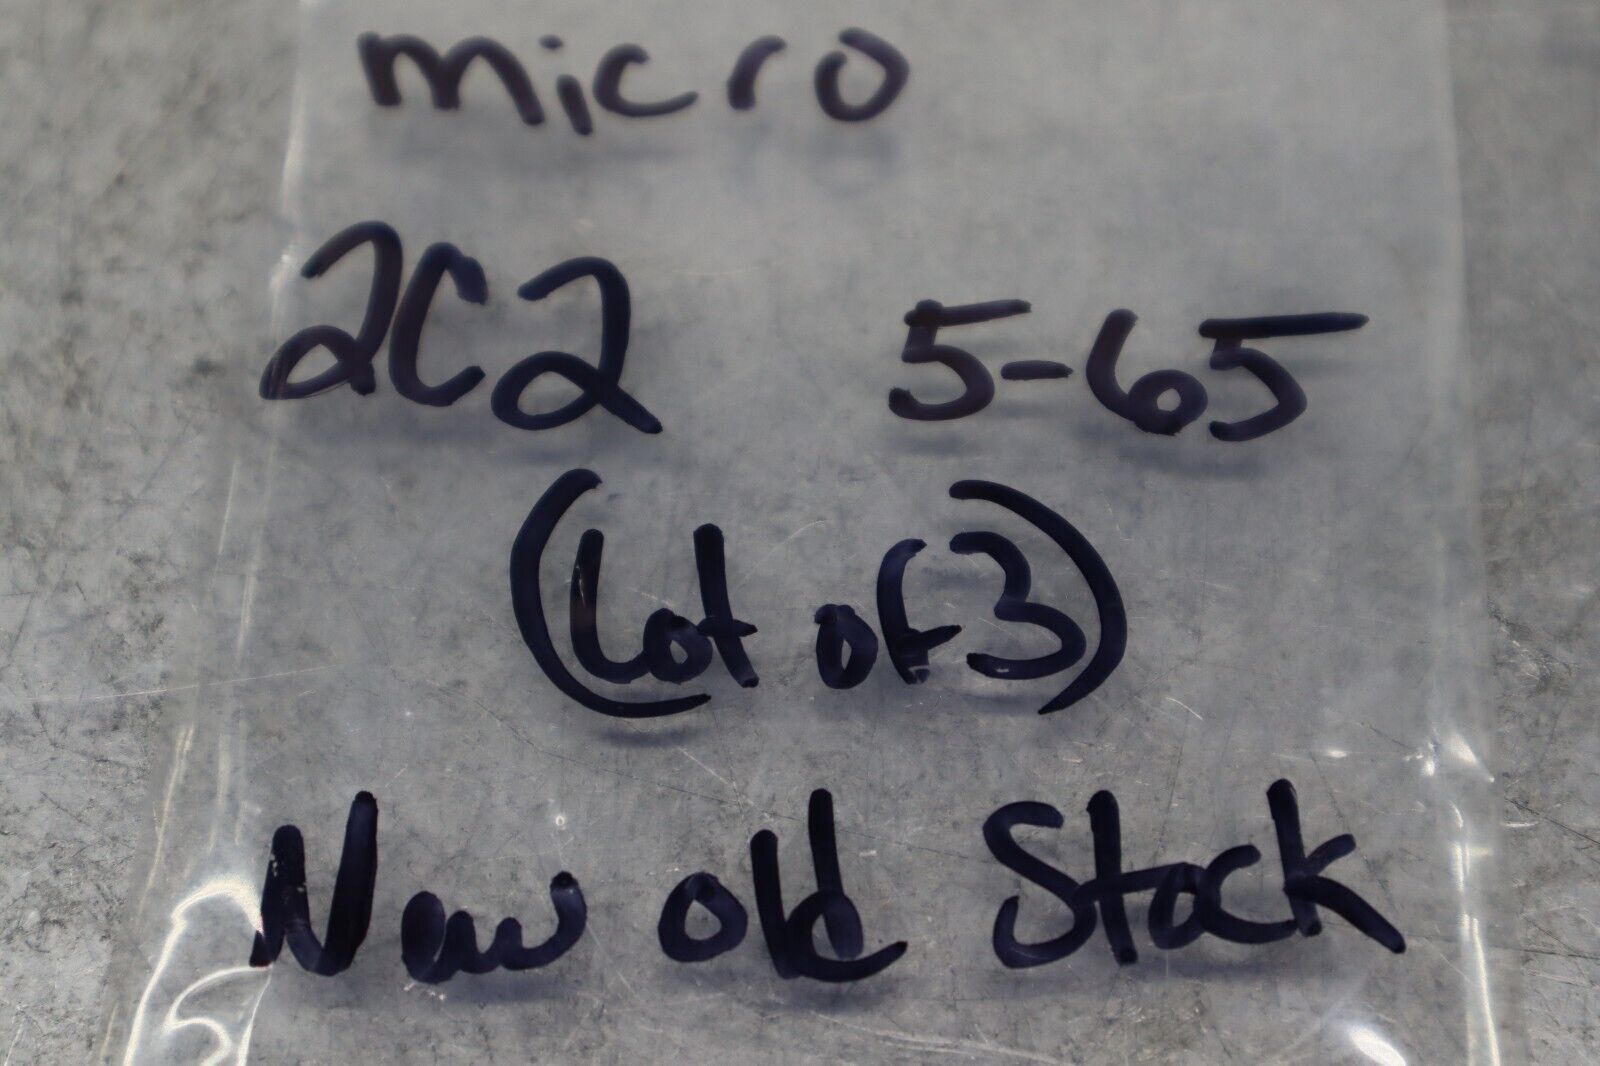 micro
2C2 5-65
(Lot of 3)
New old Stock